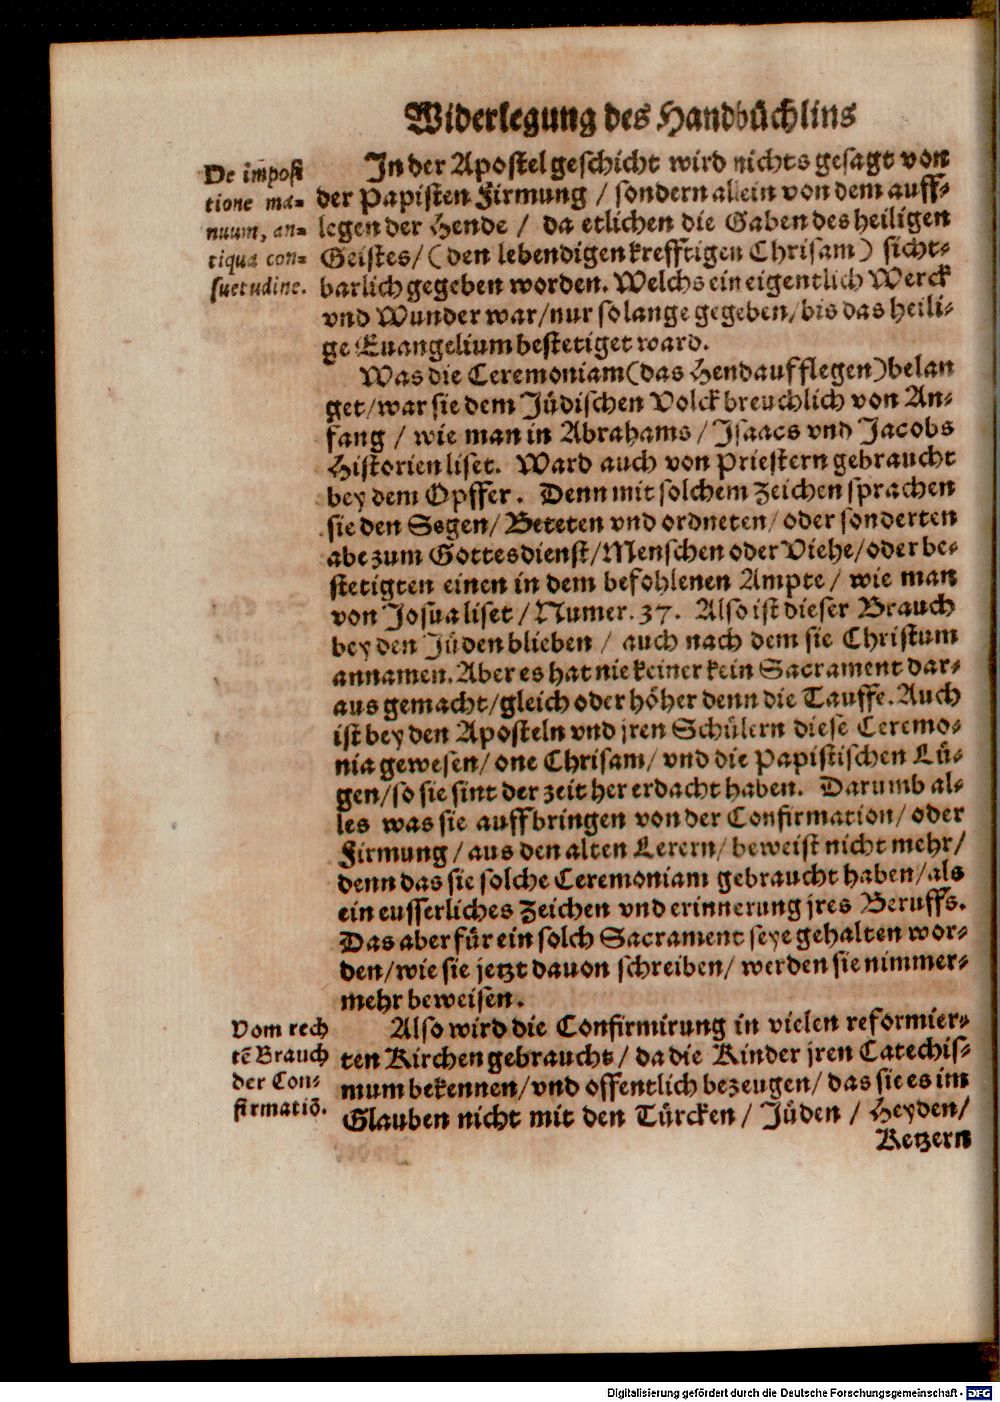 Widerlegung des Handbüchlins
De imposi
tione ma-
nuum, an-
tiqua con-
suetudine.
In der Apostelgeschicht wird nichts gesagt von
der Papisten Firmung / sondern allein von dem auff-
legen der Hende / da etlichen die Gaben des heiligen
Geistes/ (den lebendigen krefftigen Chrisam) sicht-
barlich gegeben worden. Welchs ein eigentlich Werck
vnd Wunder war/nur so lange gegeben/bis das heili-
ge Euangelium bestetiget ward.
Was die Ceremoniam(das Hendaufflegen)belan
get/war sie dem Jüdischen Volck breuchlich von An-
fang / wie man in Abrahams/Isaacs vnd Jacobs
Historien liset. Ward auch von Priestern gebraucht
bey dem Opffer. Denn mit solchem Zeichen sprachen
sie den Segen/ Beteten vnd ordneten/ oder sonderten
abe zum Gottesdienst/Menschen oder Viehe/oder be-
stetigten einen in dem befohlenen Ampte/ wie man
von Josua liset/Numer. 37. Also ist dieser Brauch
bey den Jüden blieben / auch nach dem sie Christum
annamen. Aber es hat nie keiner kein Sacrament dar-
aus gemacht/gleich oder höher denn die Tauffe. Auch
ist bey den Aposteln vnd jren Schülern diese Ceremo-
nia gewesen/ one Chrisam/ vnd die Papistischen Lü-
gen/so sie sint der zeit her erdacht haben. Darumb al-
les was sie auffbringen von der Confirmation/ oder
Firmung/aus den alten Lerern/ beweist nicht mehr/
denn das sie solche Ceremoniam gebraucht haben/als
ein eusserliches Zeichen vnd erinnerung jres Beruffs.
Das aber für ein solch Sacrament seye gehalten wor-
den/wie sie jetzt dauon schreiben/ werden sie nimmer-
mehr beweisen.
Vom rech
tẽ Brauch
der Con-
firmatiõ.
Also wird die Confirmirung in vielen reformier-
ten Kirchen gebraucht/ da die Kinder jren Catechis-
mum bekennen/vnd offentlich bezeugen/ das sie es im
Glauben nicht mit den Türcken/ Jüden / Heyden/
Ketzern
Digitalisierung gefördert durch die Deutsche Forschungsgemeinschaft - DFG